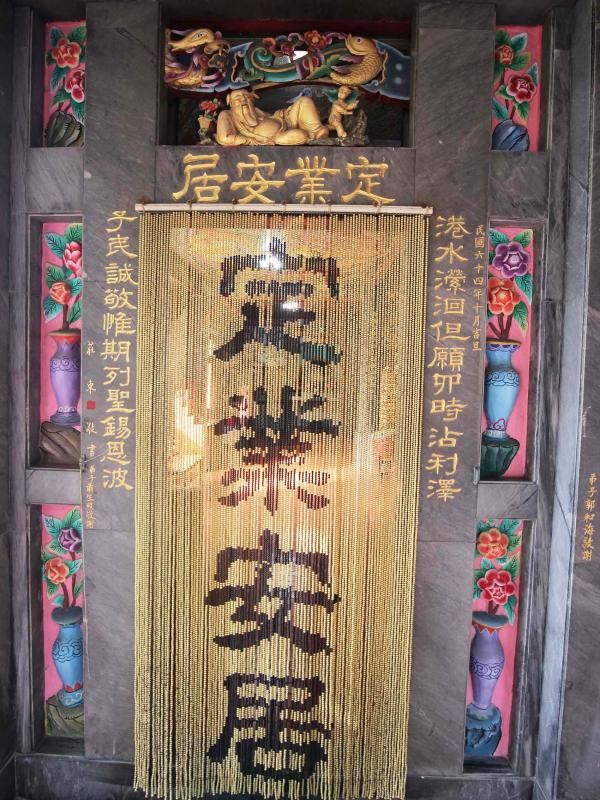 定業安居
港水瀠洄但願卯時沾利澤
民國六十四年十月吉旦
定業安居
子民誠敬惟期列聖錫恩波
莊東敬書
弟子郭和海敬謝